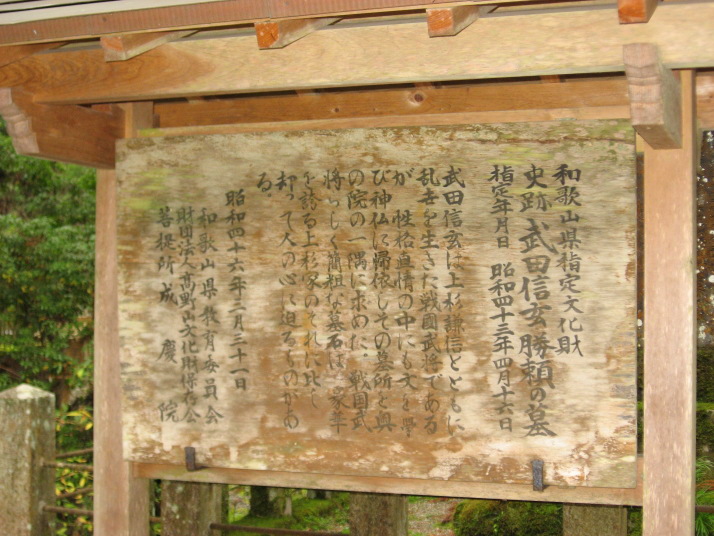 和歌山県指定文化財
史跡 武田信玄勝頼の墓
指定年月日 昭和四十三年四月十六日
武田信玄は上杉謙信とともに
乱世を生きた戦国武将である
が 性格真情の中にも文を学
び神仏に帰依しその墓所を奥
の院の一隅に求めた。戦国武
将らしく簡粗な墓石は 豪華
を誇る上杉家のそれに比して
却って人の心に迫るものがあ
る。
昭和四十六年三月三十一日
和歌山県教育委員会
財団法人高野山文化財保存会
菩提所成慶院